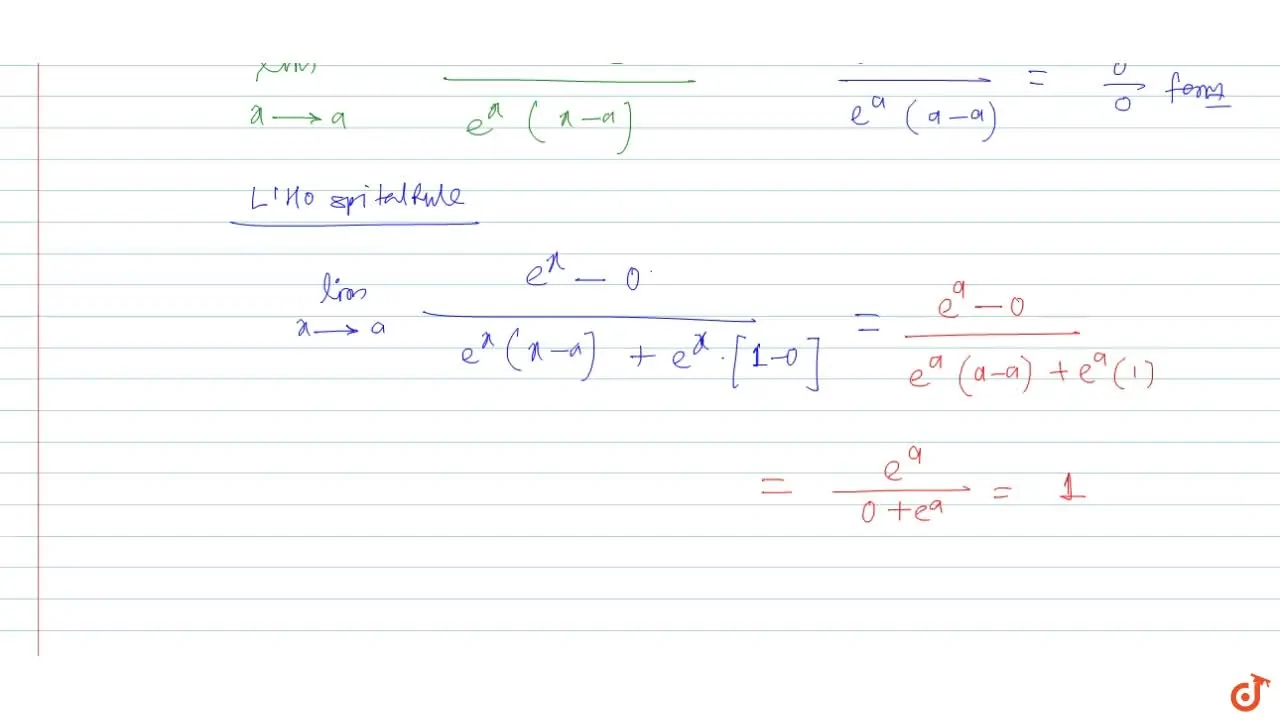 x → a e^x (x-a) e^a (a-a) = 0/0 form
L'Hospital Rule
lim x → a (e^x - 0) / (e^x (x-a) + e^x · [1-0]) = (e^a - 0) / (e^a (a-a) + e^a (1))
= e^a / (0 + e^a) = 1